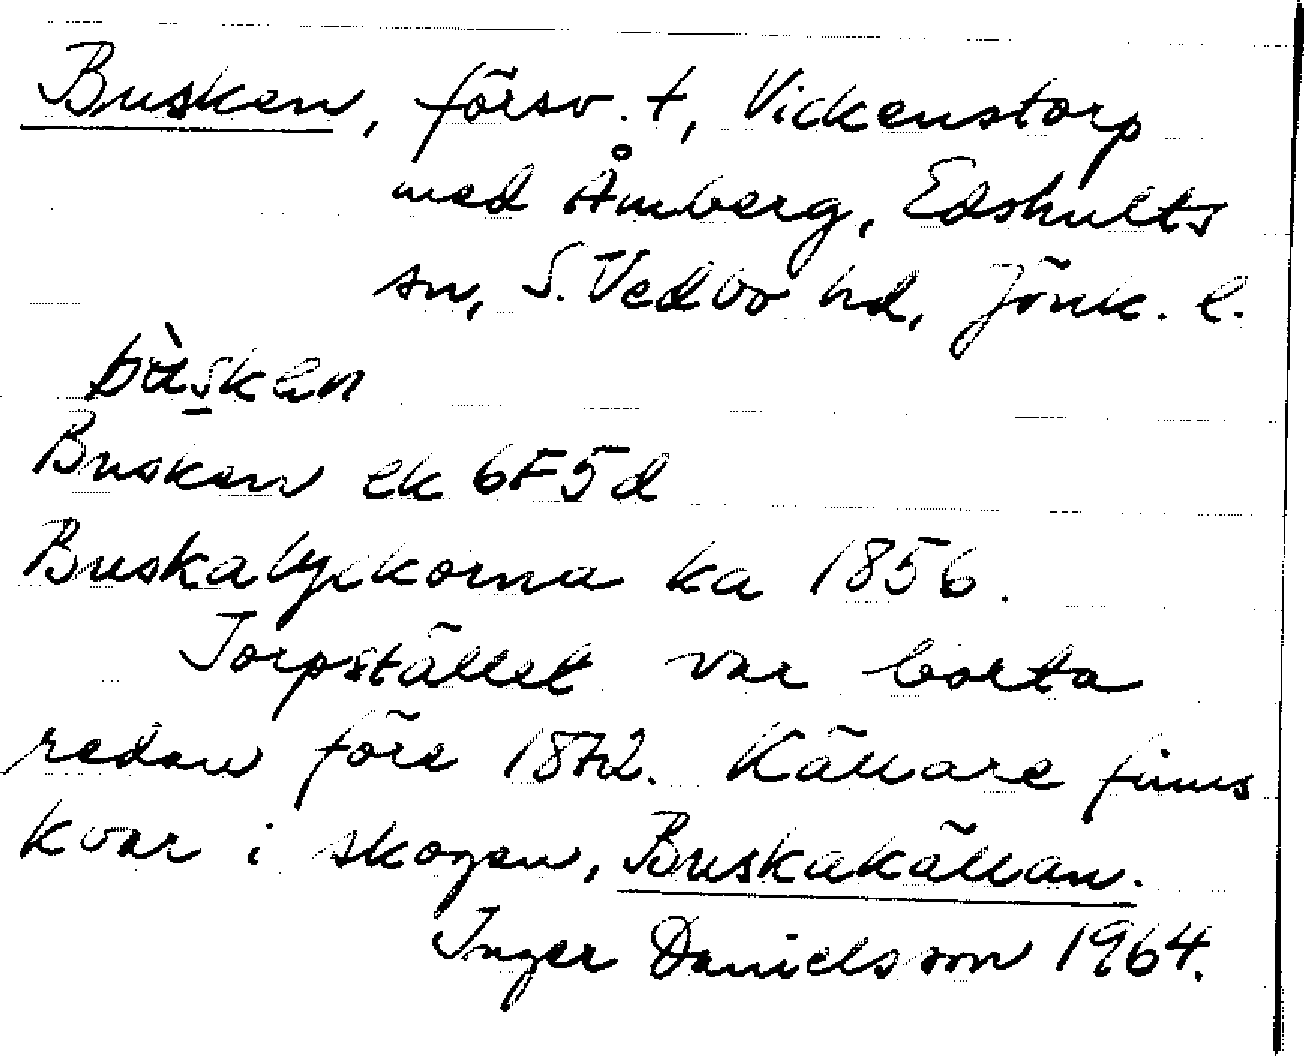 Busken, försv. t, Vickenstorp
med Åmberg, Edshults
sn, S. Vedbo hd, Jönk. l.
bùsken
Busken ek 6F5d
Buskalyckorna ka 1856.
Torpstället var borta
redan före 1872. Källare finns
kvar i skogen, Buskakällan.
Inger Danielsson 1964.